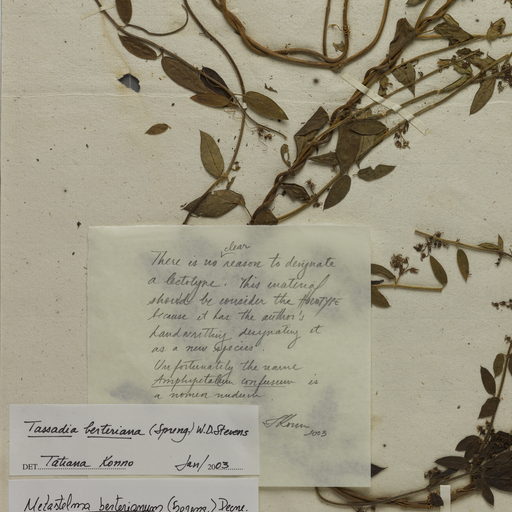 clear
There is no reason to designate
a lectotype. This material
should be consider the HOLOTYPE
because it has the author's
handwritting designating it
as a new species.
Unfortunately the name
Amphipetalum confusum is
a nomen nudum
TKonno
2003
Tassadia berteriana (Spreng.) W.D. Stevens
DET. Tatiana Konno Jan/ 2003
Metastelma berterianum (Spreng.) Decne.